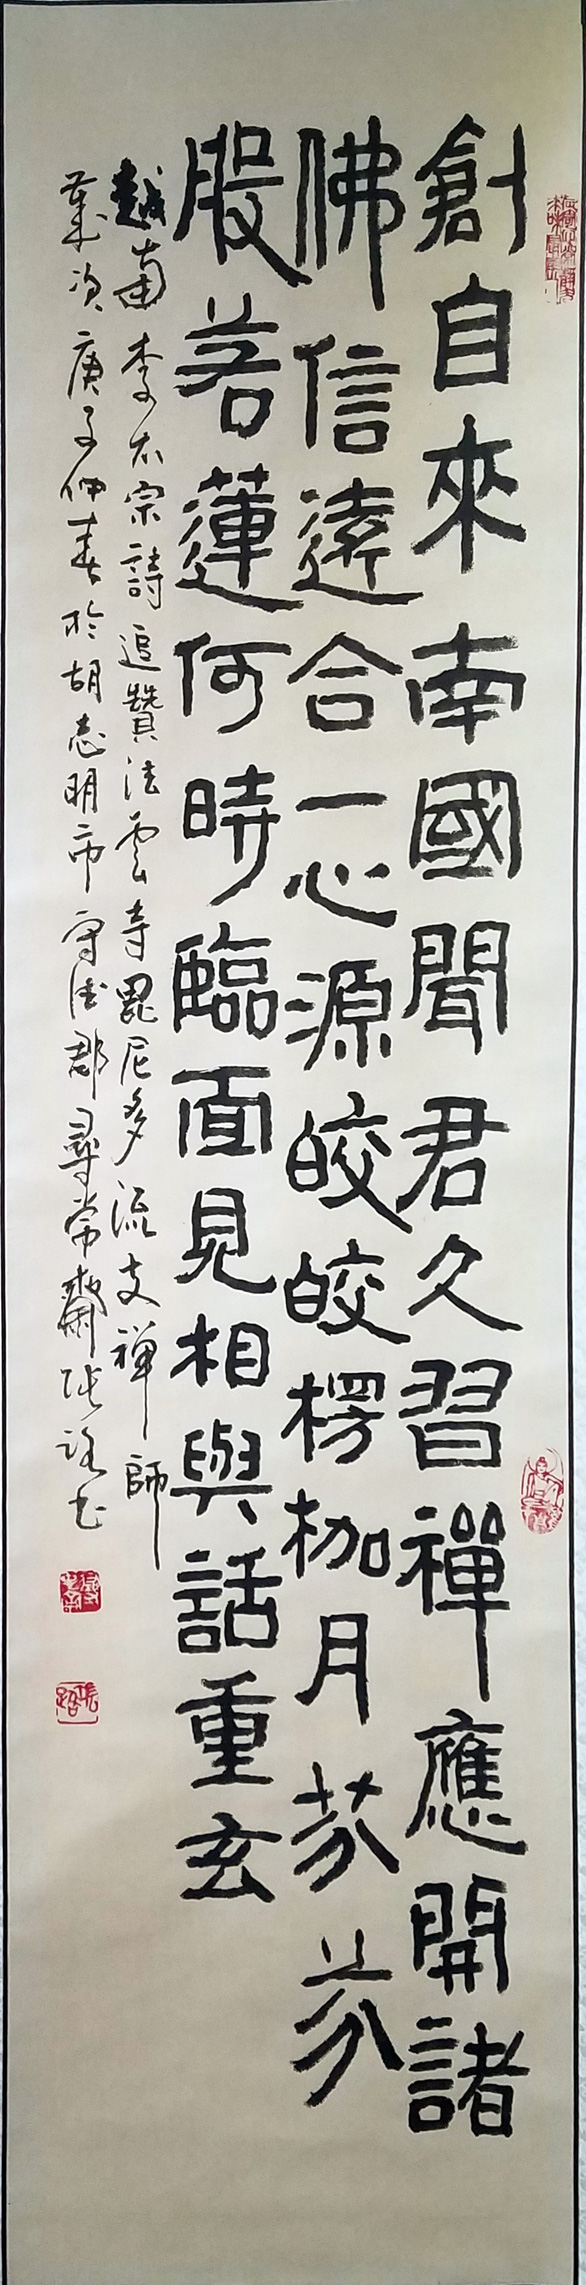 創自來南國聞君久習禪應開諸
佛信遠合一心源皎皎楞枷月芬芬
般若蓮何時臨面見相與話重玄
越南李太宗詩追贊法雲寺毘尼多流支禪師
歲次庚子仲春於胡志明市守德郡尋常齋張路書